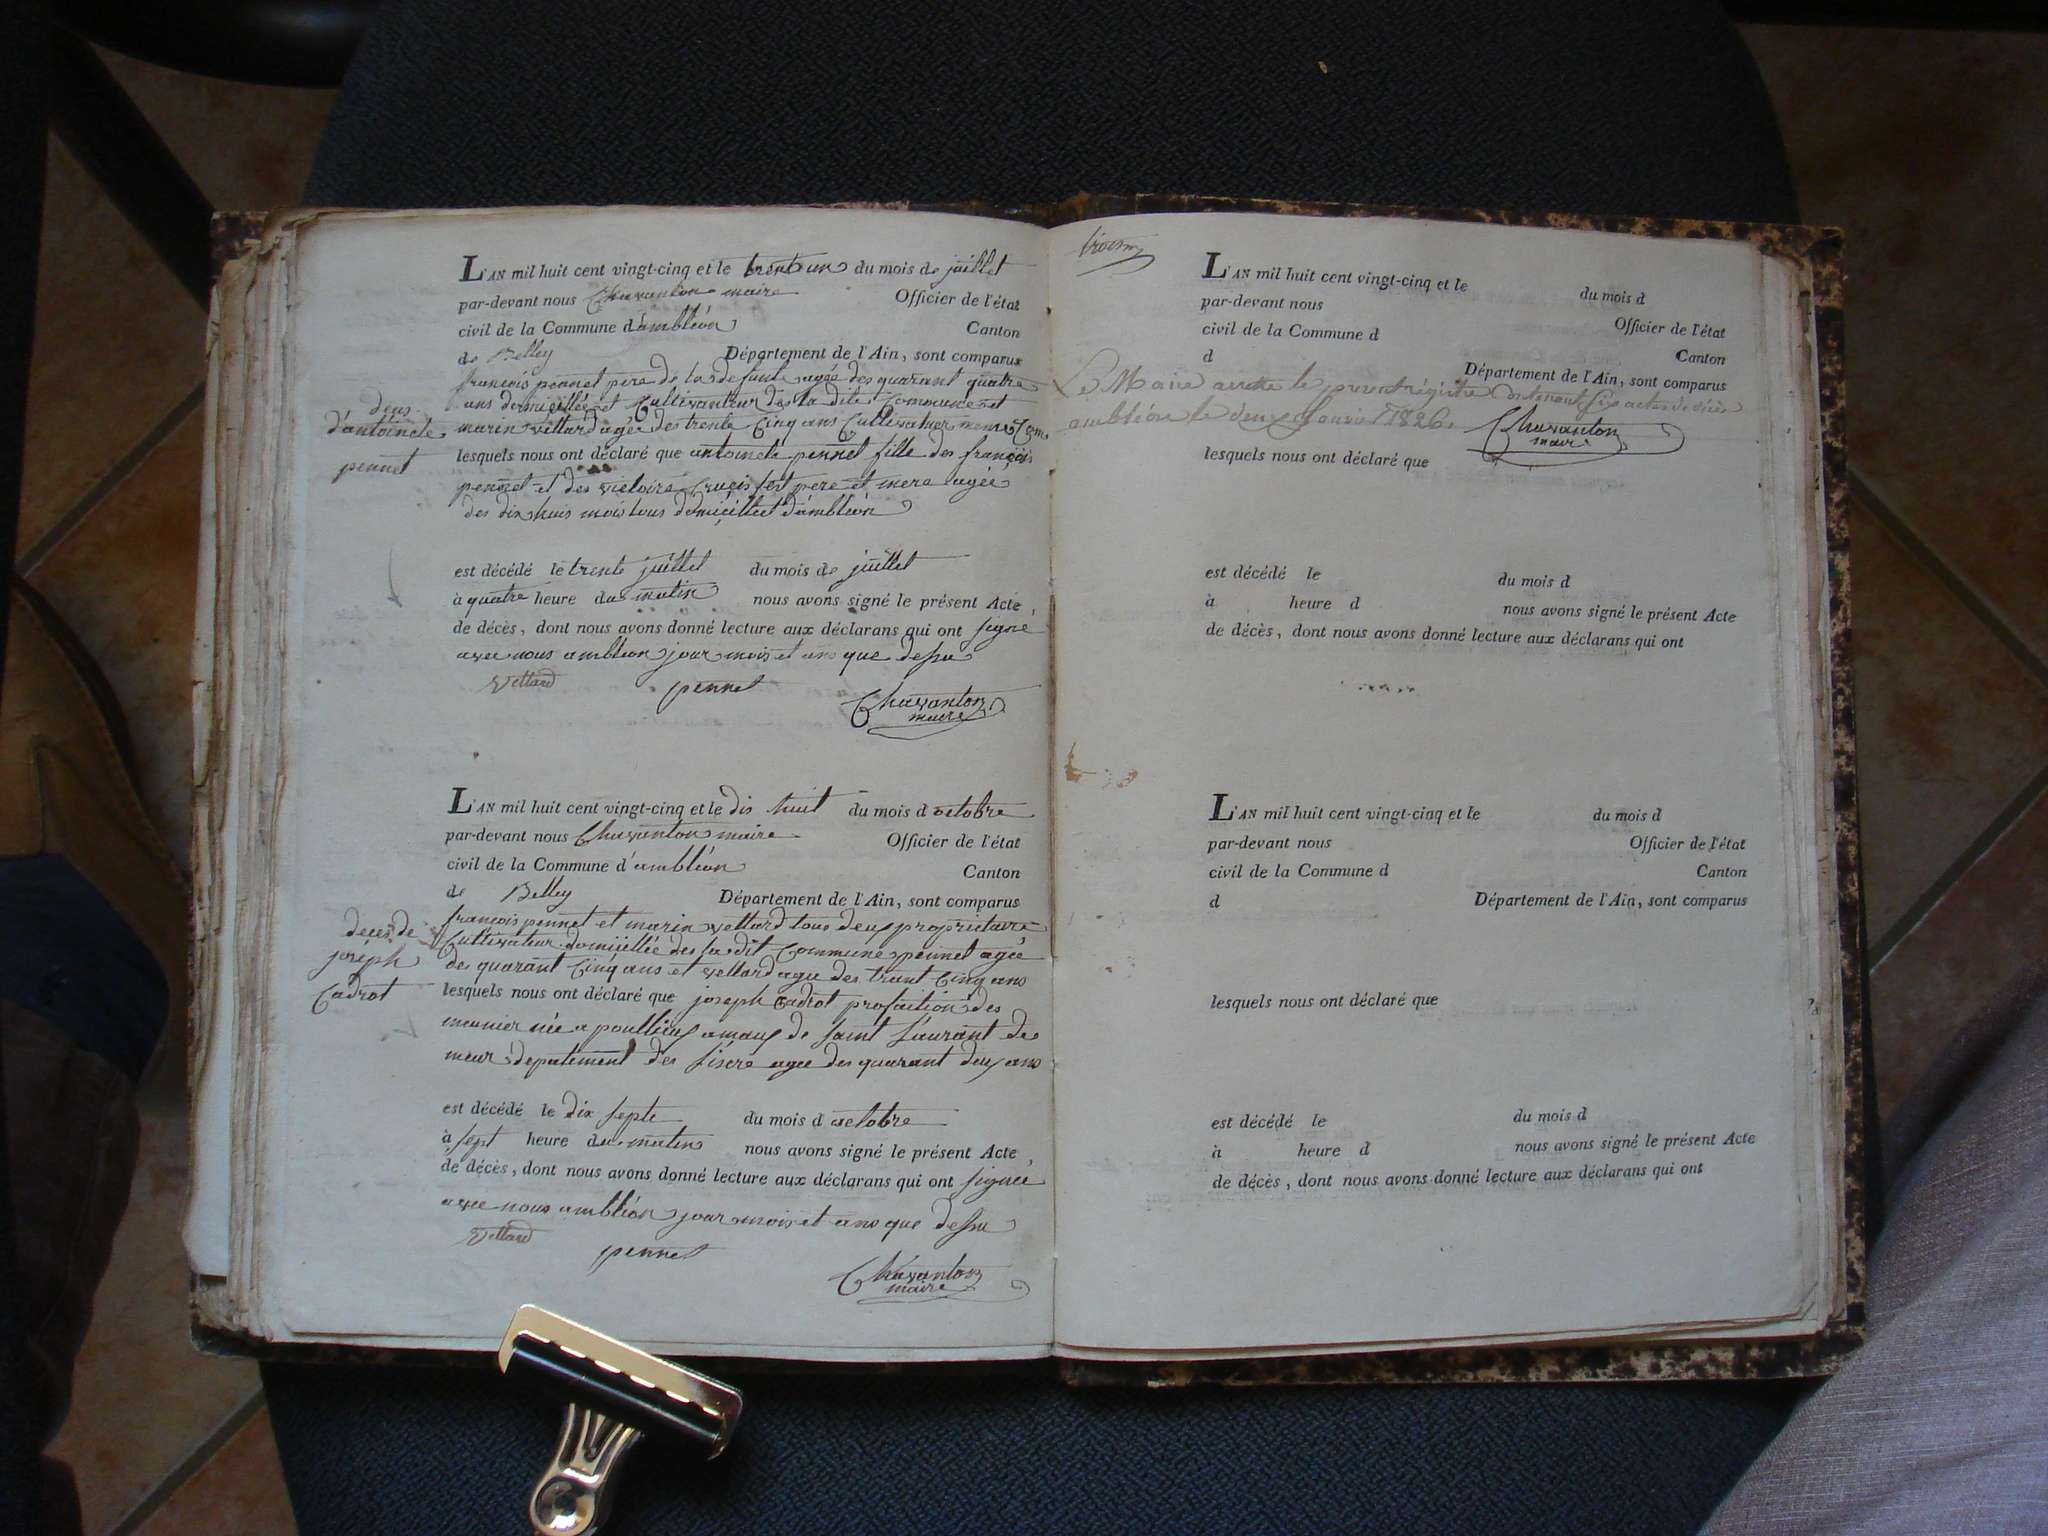 L'AN mil huit cent vingt-cinq et le trent un du mois de juillet
par-devant nous Chavanton maire Officier de l'état
civil de la Commune d'ambléon Canton
de Belley Département de l'Ain, sont comparus
françois pennet pere de la defunte agée des quarant quatre
ans domicillée et Cultivanteur des la dite Commune et
marin vettard agée des trente Cinq ans Cultivateur meme Com
lesquels nous ont déclaré que antoinete pennet fille des françois
pennet et des victoire Crucis fost pere et mere agée
des dix huis mois tous domicillect d'ambléon
deus
d'antoinete
pennet
est décédé le trente juillet du mois de juillet
à quatre heure du matin nous avons signé le présent Acte
de décès, dont nous avons donné lecture aux déclarans qui ont signé
avec nous ambleon jour mois et ans que dessu
Vettard pennet Chavanton
maire
L'AN mil huit cent vingt-cinq et le dix huit du mois d octobre
par-devant nous Chavanton maire Officier de l'état
civil de la Commune d'ambléon Canton
de Belley Département de l'Ain, sont comparus
françois pennet et marin vettard tous deux proprietaire
Cultivateur domicillée des la dit Commune pennet agée
de quarant Cinq ans et vettard agée des trant Cinq ans
lesquels nous ont déclaré que joseph Cadrot profaition des
meunier née a poullieux amaux de saint Laurant de
meur depatement des Lisere agee des quarant deux ans
deces de
joseph
Cadrot
est décédé le dix septe du mois d octobre
à sept heure du matin nous avons signé le présent Acte
de décès, dont nous avons donné lecture aux déclarans qui ont signée
avec nous ambléon jour mois et ans que dessu
Vettard pennet
Chavanton
maire
L'AN mil huit cent vingt-cinq et le du mois d
par-devant nous Officier de l'état
civil de la Commune d Canton
d Département de l'Ain, sont comparus
Le Maire arrette le present régistre Contenant six actes de décès
ambléon le deux Janvier 1826. Chavanton
maire
lesquels nous ont déclaré que
est décédé le du mois d
à heure d nous avons signé le présent Acte
de décès, dont nous avons donné lecture aux déclarans qui ont
L'AN mil huit cent vingt-cinq et le du mois d
par-devant nous Officier de l'état
civil de la Commune d Canton
d Département de l'Ain, sont comparus
lesquels nous ont déclaré que
est décédé le du mois d
à heure d nous avons signé le présent Acte
de décès, dont nous avons donné lecture aux déclarans qui ont